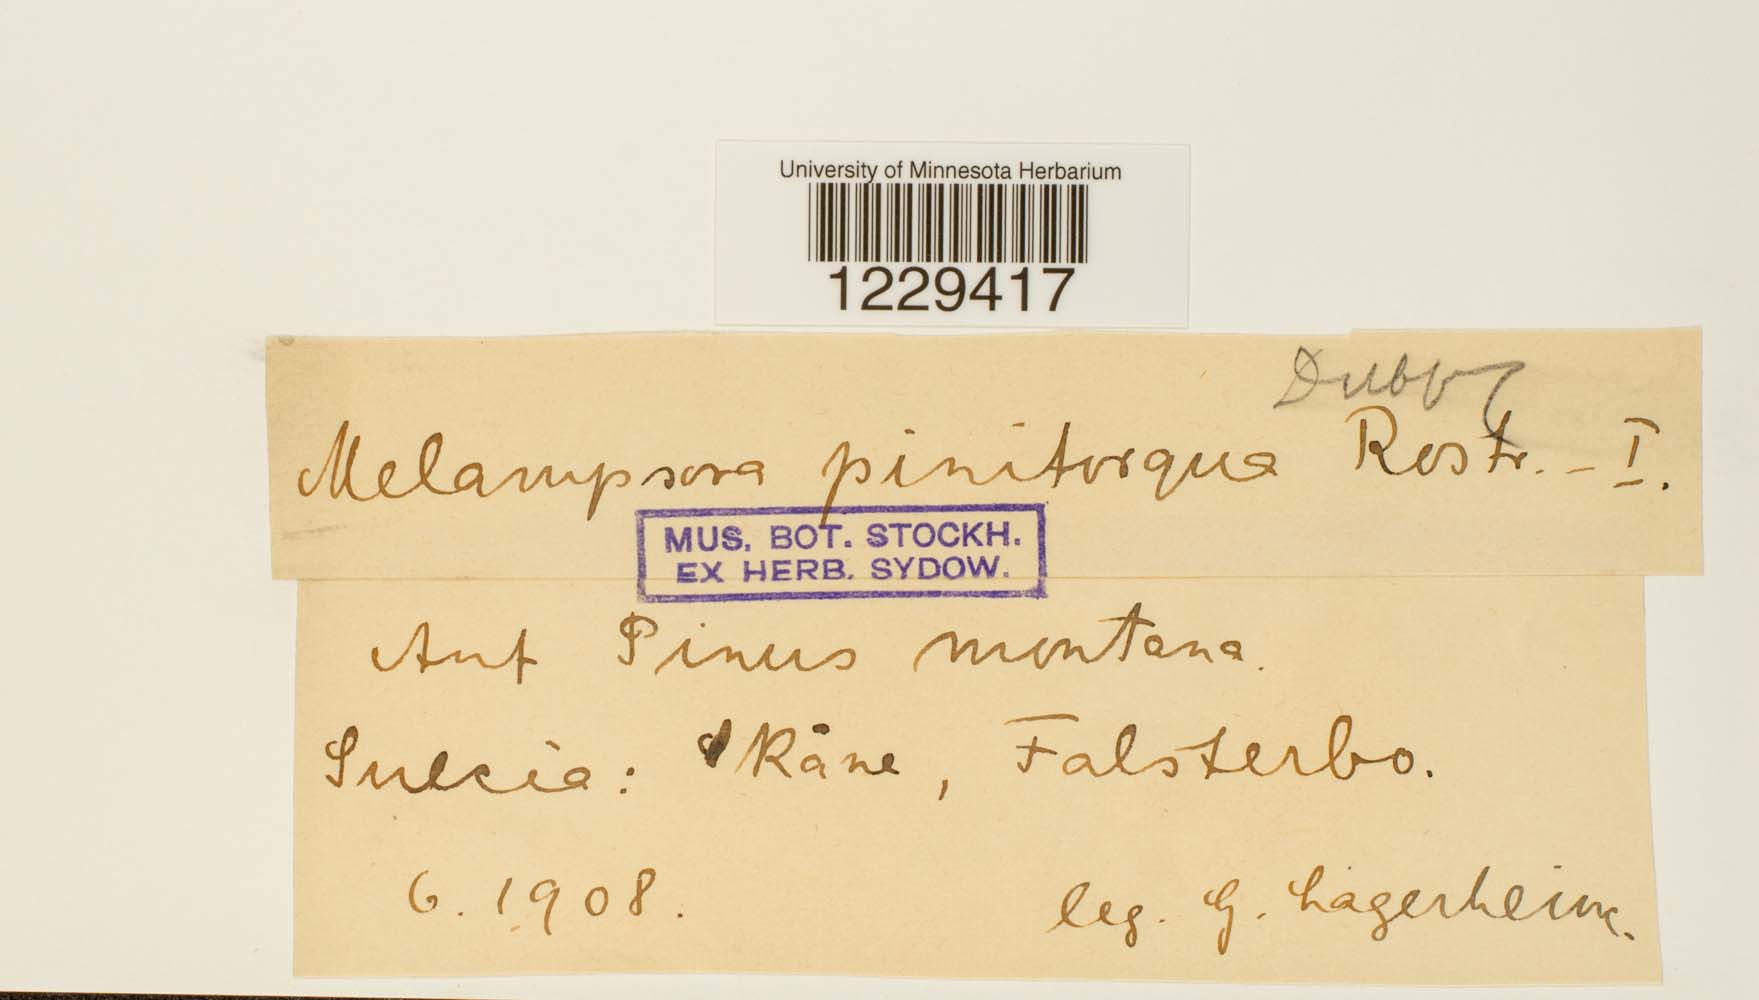 University of Minnesota Herbarium
1229417
Melampsora pinitorqua Rostr. - I.
MUS. BOT. STOCKH.
EX HERB. SYDOW.
Auf Pinus montana.
Suecia: Skåne, Falsterbo.
6. 1908.
leg. G. Lagerheim.